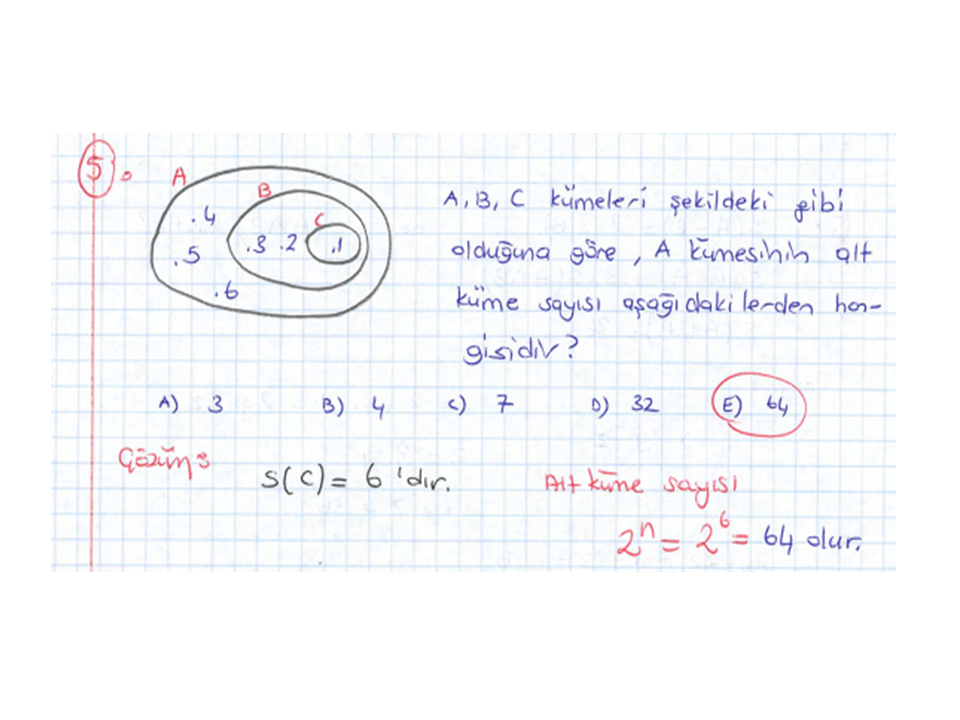 5.
A
B
C
.4
.3 .2 .1
.5
.6
A, B, C kümeleri şekildeki gibi
olduğuna göre, A kümesinin alt
küme sayısı aşağıdakilerden han-
gisidir?
A) 3 B) 4 C) 7 D) 32 E) 64
Çözüm:
s(C) = 6 'dır.
Alt küme sayısı
2ⁿ = 2⁶ = 64 olur.